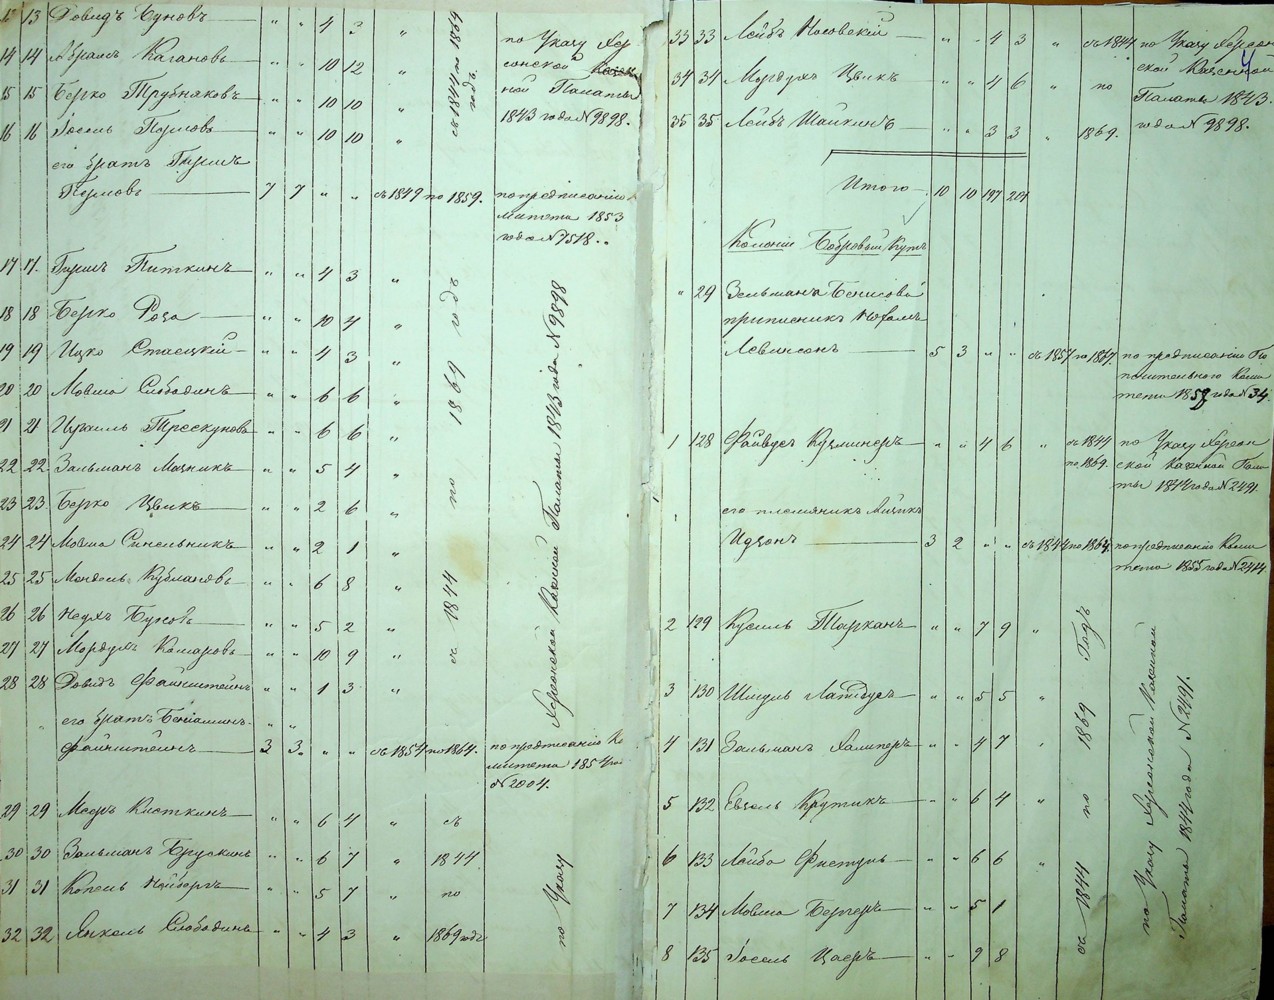 13 13 Довидъ Едновъ " " 4 3 "
14 14 Абрамъ Кагановъ " " 10 12 "
15 15 Берко Трубнаковъ " " 10 10 "
16 16 Іосель Перловъ " " 10 10 "
съ 1844 по 1869 годъ.
по Указу Хер
сонской Казен
ной Палаты
1843 года № 9898.
его братъ Гиршъ
Перловъ 7 7 " " съ 1849 по 1859. по предписанію Ко
митета 1853
года № 7518.
17 17. Гиршъ Питкинъ " " 4 3 "
18 18 Берко Роза " " 10 4 "
19 19 Ицко Стаецкій " " 4 3 "
20 20 Мовша Слободинъ " " 6 6 "
21 21 Израиль Трескуновъ " " 6 6 "
22 22 Зальманъ Мазникъ " " 5 4 "
23 23 Берко Цвикъ " " 2 6 "
24 24 Мовша Синельникъ " " 2 1 "
25 25 Мендель Кублановъ " " 6 8 "
26 26 " " 5 2 "
27 27 Мордухъ Комаровъ " " 10 9 "
28 28 Довидъ Файнштейнъ " " 1 3 "
съ 1844 по 1869 годъ
по Указу Херсонской Казенной Палаты 1843 года № 9898
его братъ Беніаминъ " "
Файнштейнъ 3 3 " " съ 1854 по 1864. по предписанію Ко
митета 1854 го
№ 2004.
29 29 Мееръ Кисткинъ " " 6 4 " съ
30 30 Зальманъ Брускинъ " " 6 7 " 1844
31 31 Копель " " 5 7 " по
32 32 Янкель Слободинъ " " 4 3 " 1869 годъ
33 33 Лейбъ Носовскій " " 4 3 " съ 1844 по Указу Херсон
34 34 Мордухъ Цвикъ " " 4 6 " по ской Казенной
35 35 Лейбъ Шайкинъ " " 3 3 " 1869. Палаты 1843.
года № 9898.
Итого 10 10 197 201
Колоніи Бобровый Кутъ
" 29 Зельмана Бенисова
приписникъ
Левинсонъ 5 3 " " съ 1857 по 1867. по предписанію По
печительнаго Коми
тета 1858 года № 34.
1 128 Файвусъ Кузминеръ " " 4 6 " съ 1844 по Указу Херсон
по 1869. ской Казенной Пала
ты 1844 года № 2491.
его племянникъ Айзикъ
Идзонъ 3 2 " " съ 1844 по 1864. по предписанію Коми
тета 1855 года № 2444
2 129 Кусиль Тарканъ " " 7 9 "
3 130 Шмуль " " 5 5 "
4 131 Зальманъ Халиперъ " " 4 7 "
5 132 Евзель Крутикъ " " 6 4 "
6 133 Лейба Фистуль " " 6 6 "
7 134 Мовша Бергеръ " " 5 1
8 135 Іосель Цаеръ " " 9 8
съ 1844 по 1869 Годъ
по Указу Херсонской Казенной
Палаты 1844 года № 2491.